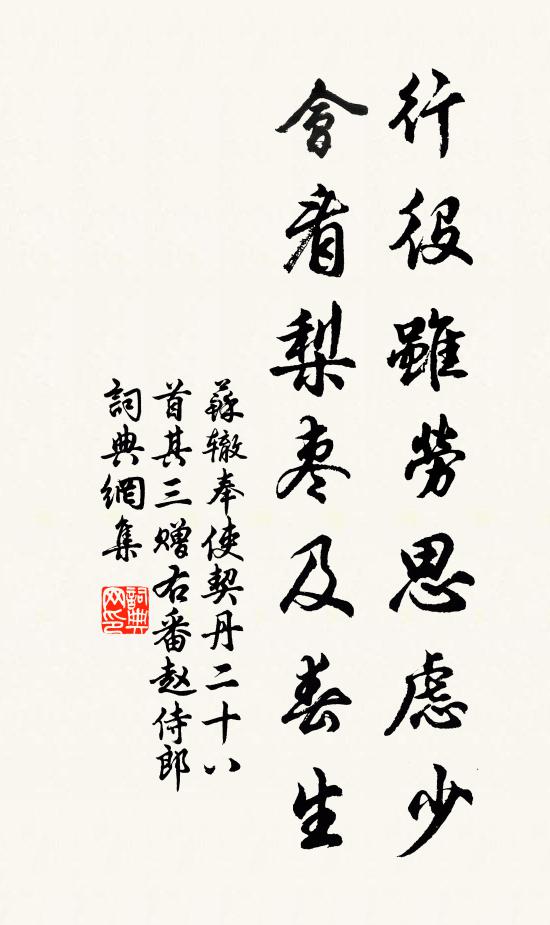 行役雖勞思慮少
會看梨枣及春生
蘇辙奉使契丹二十八
首其三赠右番赵侍郎
詞典網集
詞典
网印